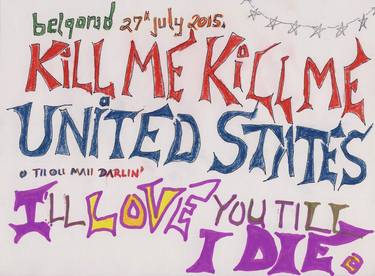 belgarad 27th july 2015.
KiLL ME KiLL ME
UNiTED STATES
MAII DARLIN'
I'LL LOVE YOU TILL
I DIE